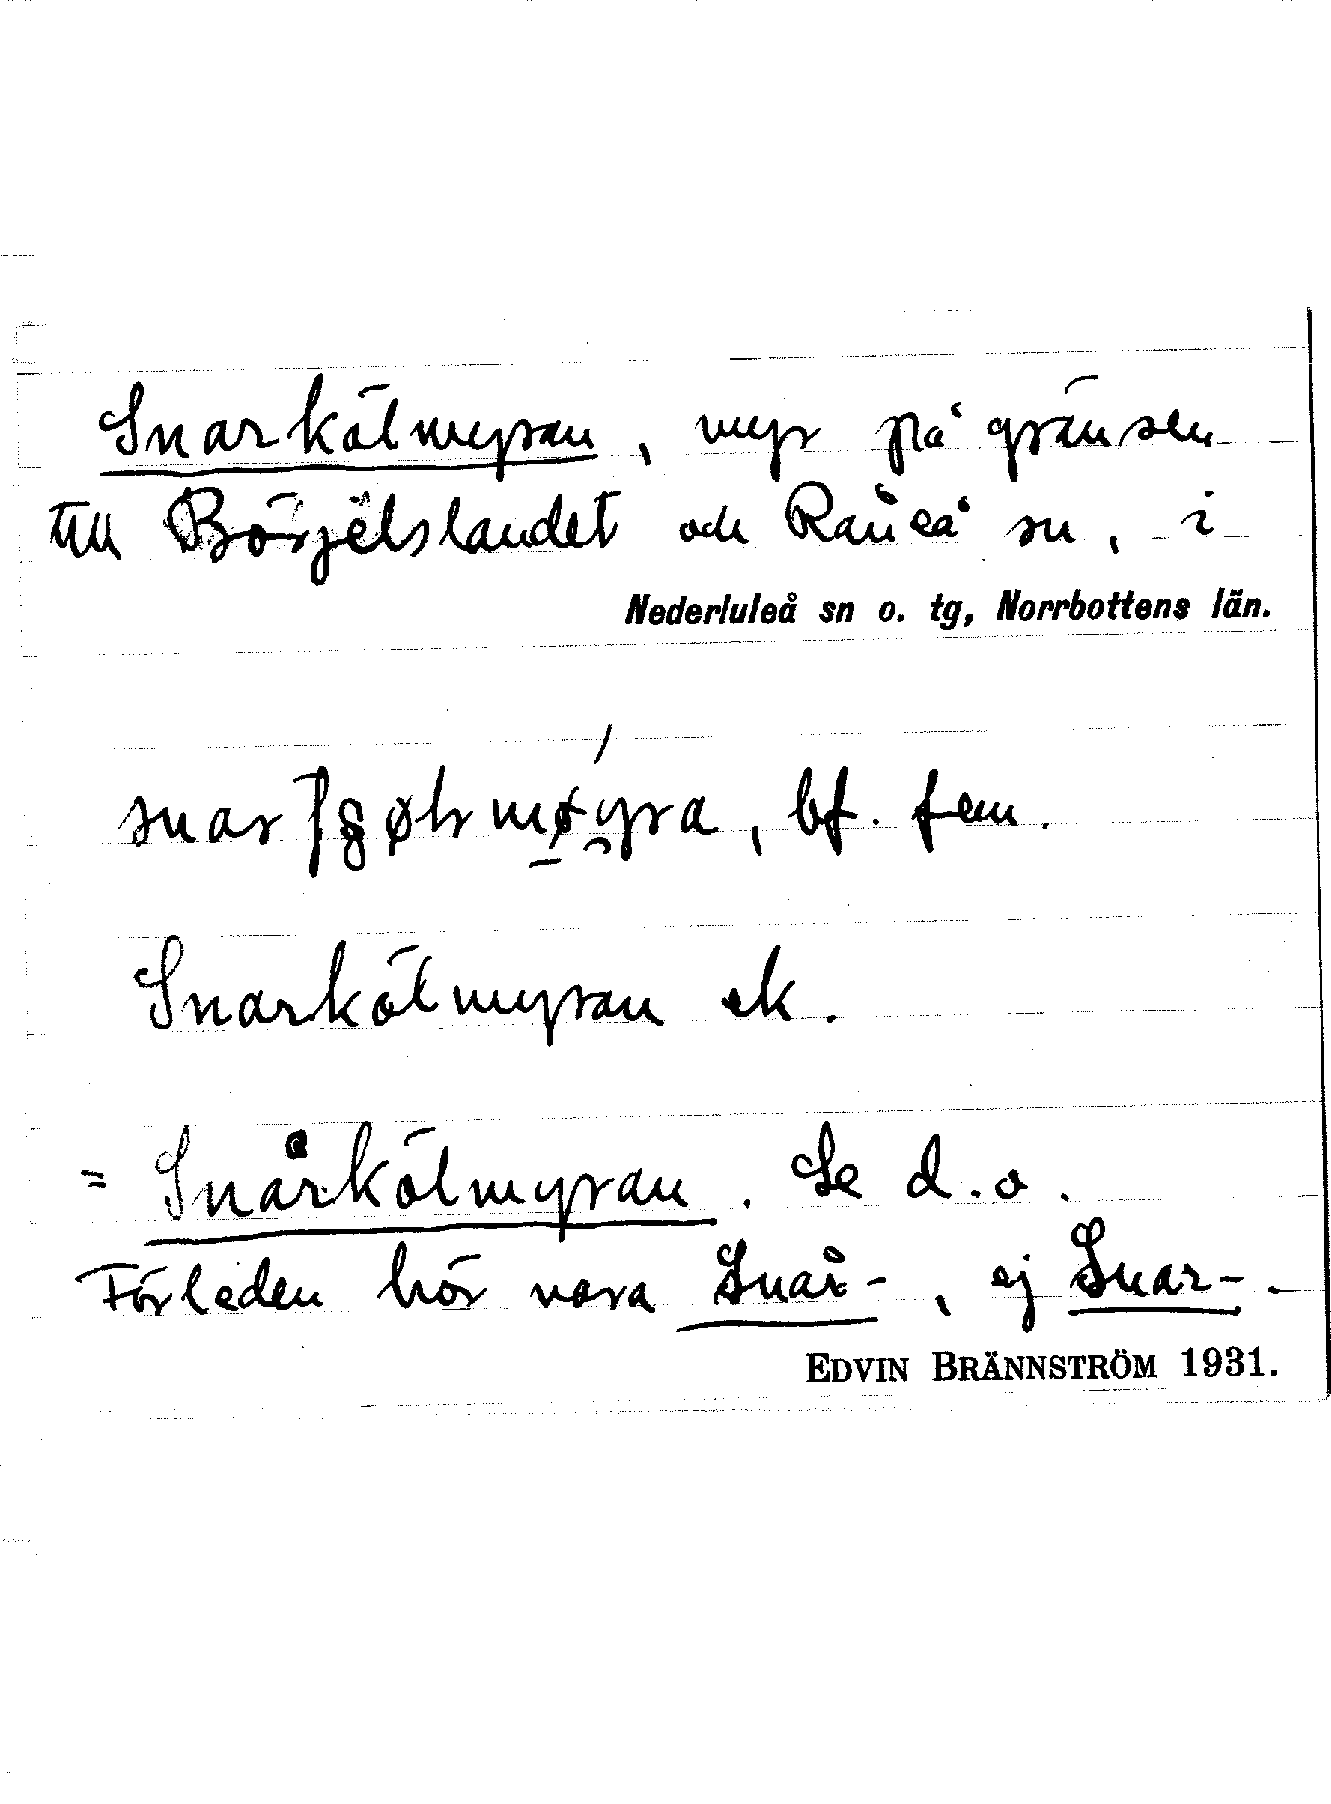 Snarkölmyran, myr på gränsen
till Börjelslandet och Råneå sn, i
Nederluleå sn o. tg, Norrbottens län.
bf. fem.
Snarkölmyran ek.
= Snårkölmyran. Se d.o.
Förleden bör vara Snår-, ej Snar-.
EDVIN BRÄNNSTRÖM 1931.